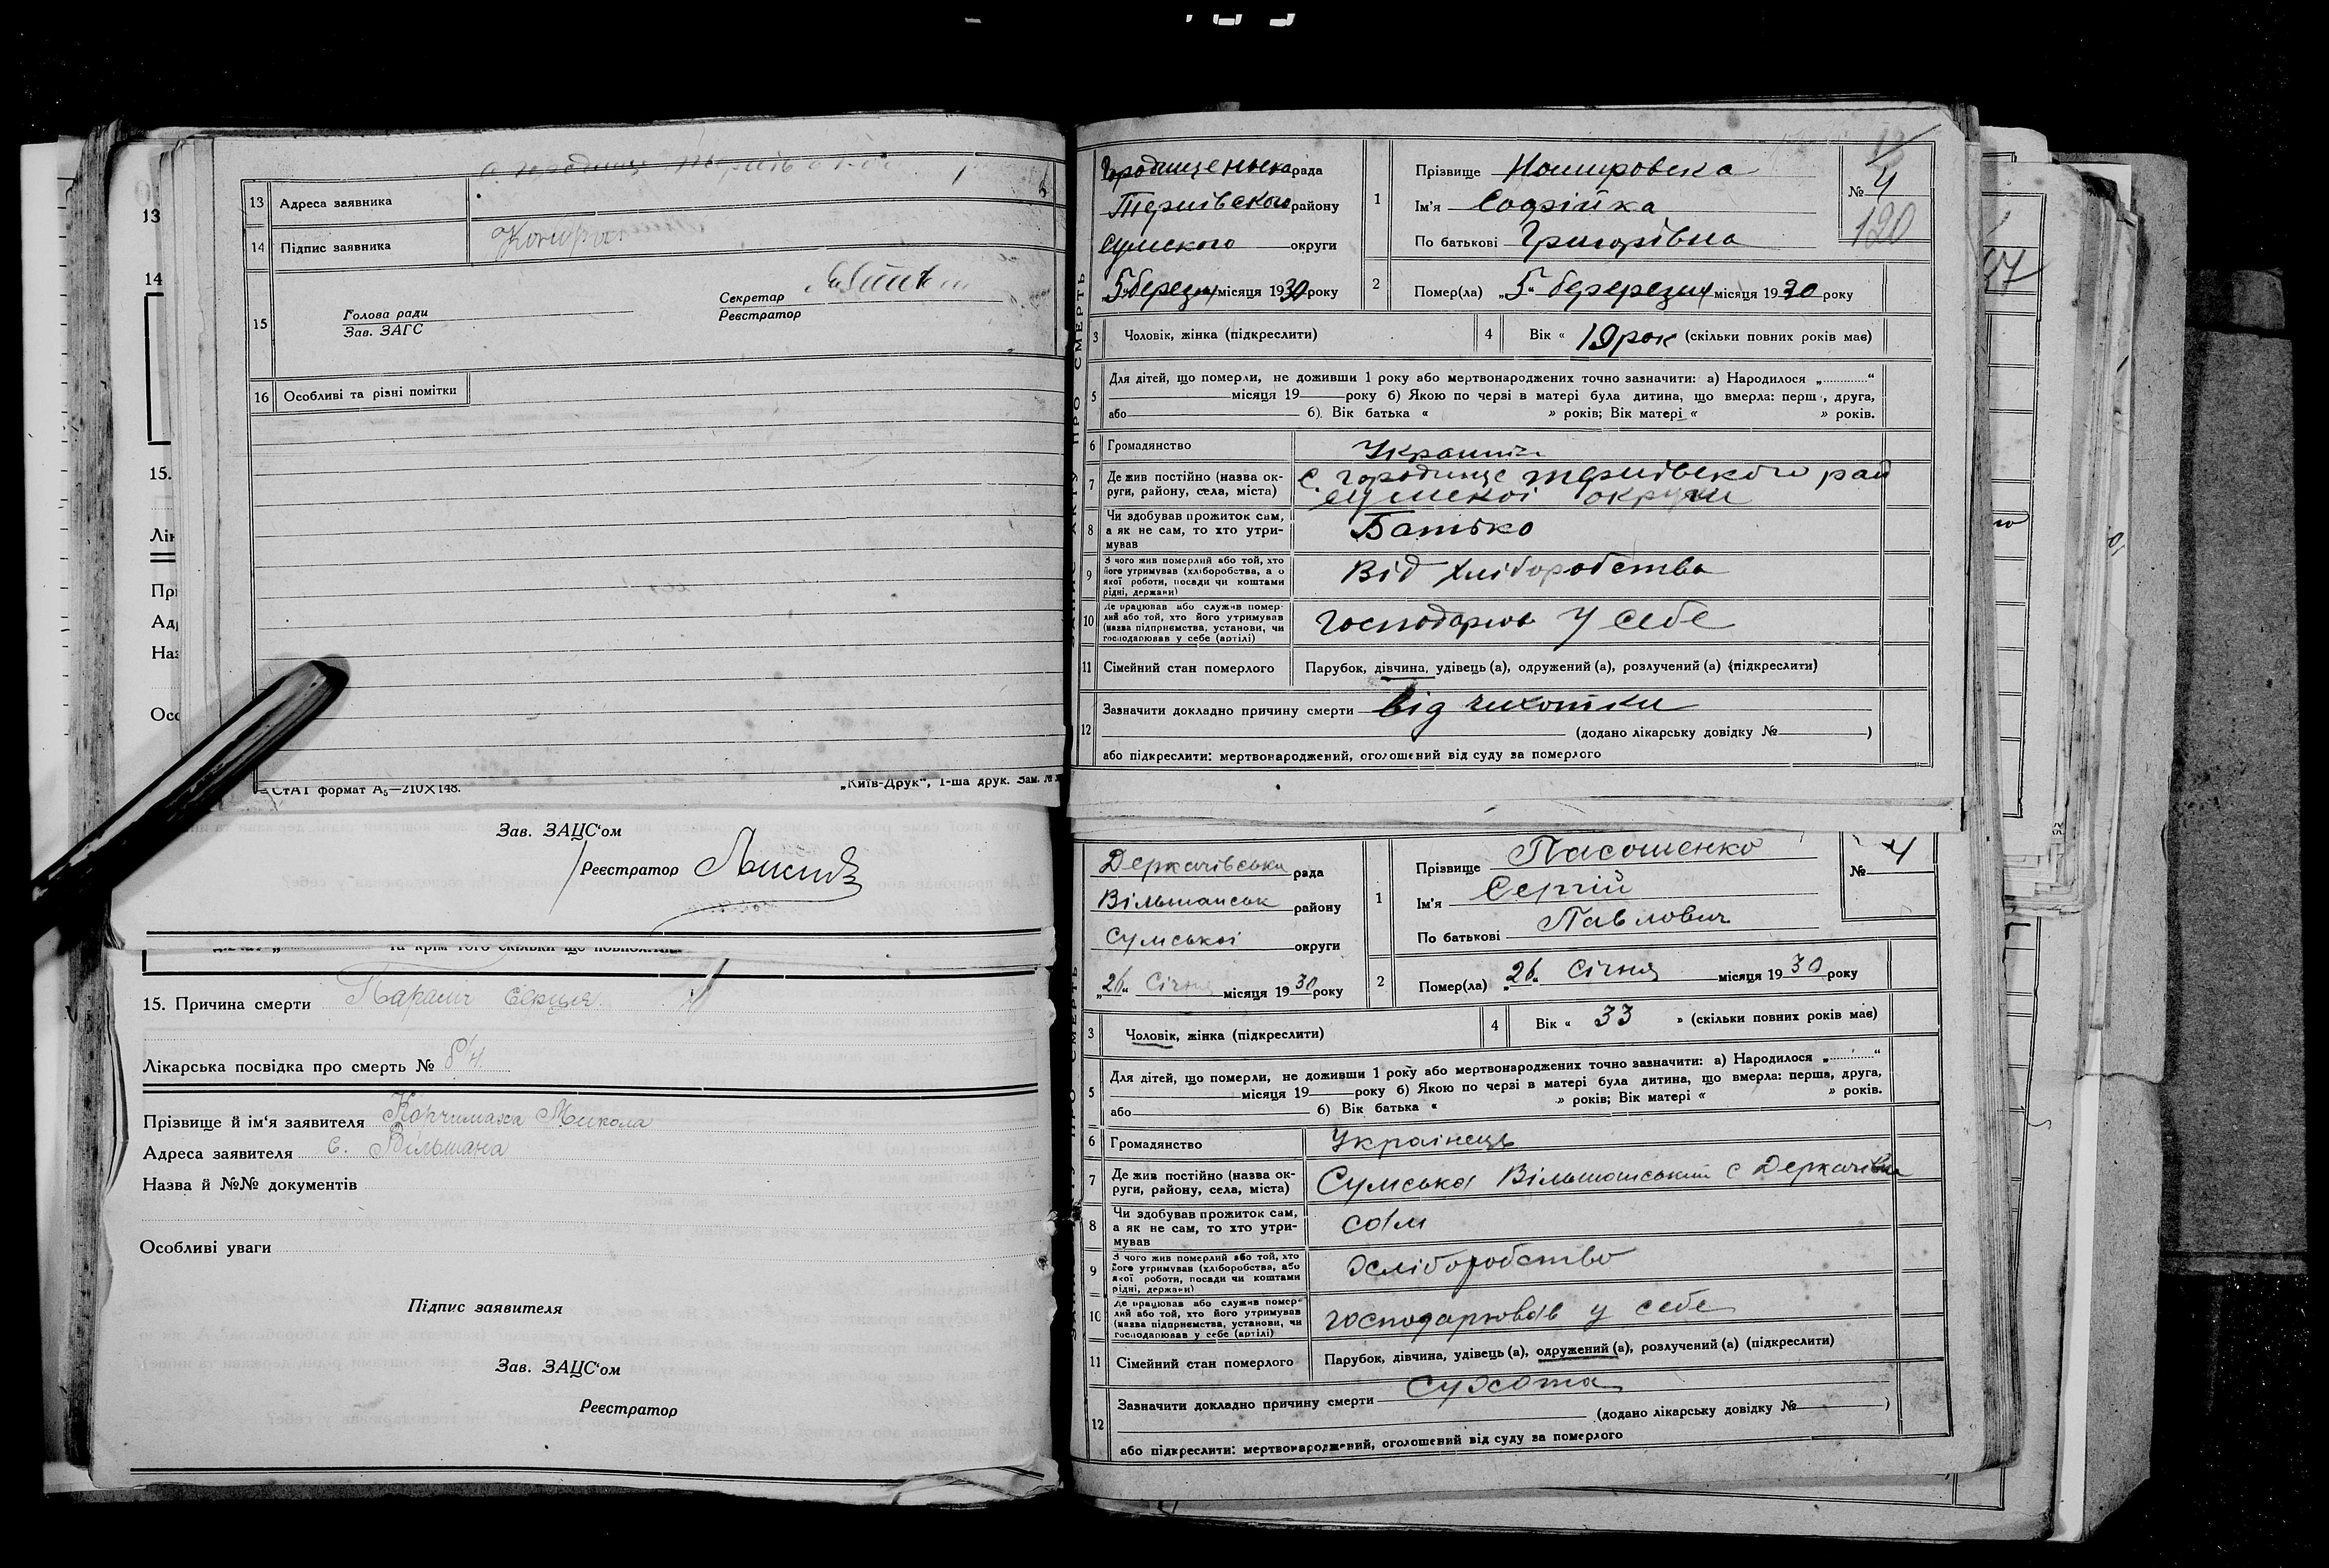 13 Адреса заявника
14 Підпис заявника
15 Голова ради
Зав. ЗАГС
Секретар
Реєстратор
16 Особливі та різні помітки
СТАТ формат А5—210×148.
„Київ-Друк", 1-ша друк. Зам. №
Зав. ЗАЦС'ом
Реєстратор
15. Причина смерти Параліч серця
Лікарська посвідка про смерть №
Прізвище й ім'я заявителя Микола
Адреса заявителя с. Вільшана
Назва й №№ документів
Особливі уваги
Підпис заявителя
Зав. ЗАЦС'ом
Реєстратор
13
14
15.
рада
Тернівского району
Сумского округи
„5" березня місяця 1930 року
1 Прізвище
Ім'я Софійка
По батькові Григорівна
№ 4
120
2 Помер(ла) „5" місяця 1930 року
3 Чоловік, жінка (підкреслити)
4 Вік « 19 рок (скільки повних років має)
5 Для дітей, що померли, не доживши 1 року або мертвонароджених точно зазначити: а) Народилося „ "
місяця 19 року б) Якою по черзі в матері була дитина, що вмерла: перш, друга,
або б) Вік батька « » років; Вік матері « » років.
6 Громадянство
7 Де жив постійно (назва округи, району, села, міста) с. городище тернівского рай
сумскоі округи
8 Чи здобував прожиток сам, а як не сам, то хто утримував Батько
9 З чого жив померлий або той, хто його утримував (хліборобства, а о якої роботи, посади чи коштами рідні, держави) Від хліборобства
10 Де працював або служив померлий або той, хто його утримував (назва підприємства, установи, чи господарював у себе (артілі) у себе
11 Сімейний стан померлого Парубок, дівчина, удівець(а), одружений(а), розлучений(а) (підкреслити)
12 Зазначити докладно причину смерти від чихотки
(додано лікарську довідку № )
або підкреслити: мертвонароджений, оголошений від суду за померлого
Деркачівська рада
Вільшанськ району
Сумськоі округи
„26" Січня місяця 1930 року
1 Прізвище Пасошенко
Ім'я Сергій
По батькові Павлович
№ 4
2 Помер(ла) „26" Січня місяця 1930 року
3 Чоловік, жінка (підкреслити)
4 Вік « 33 » (скільки повних років має)
5 Для дітей, що померли, не доживши 1 року або мертвонароджених точно зазначити: а) Народилося „ "
місяця 19 року б) Якою по черзі в матері була дитина, що вмерла: перша, друга,
або б) Вік батька « » років; Вік матері « » років.
6 Громадянство Украінець
7 Де жив постійно (назва округи, району, села, міста) Сумська Вільшанський с Деркачівка
8 Чи здобував прожиток сам, а як не сам, то хто утримував сам
9 З чого жив померлий або той, хто його утримував (хліборобства, або якої роботи, посади чи коштами рідні, держави) Хліборобство
10 Де працював або служив померлий або той, хто його утримував (назва підприємства, установи, чи господарював у себе (артілі) господарював у себе
11 Сімейний стан померлого Парубок, дівчина, удівець(а), одружений(а), розлучений(а) (підкреслити)
12 Зазначити докладно причину смерти Сухота
(додано лікарську довідку № )
або підкреслити: мертвонароджений, оголошений від суду за померлого